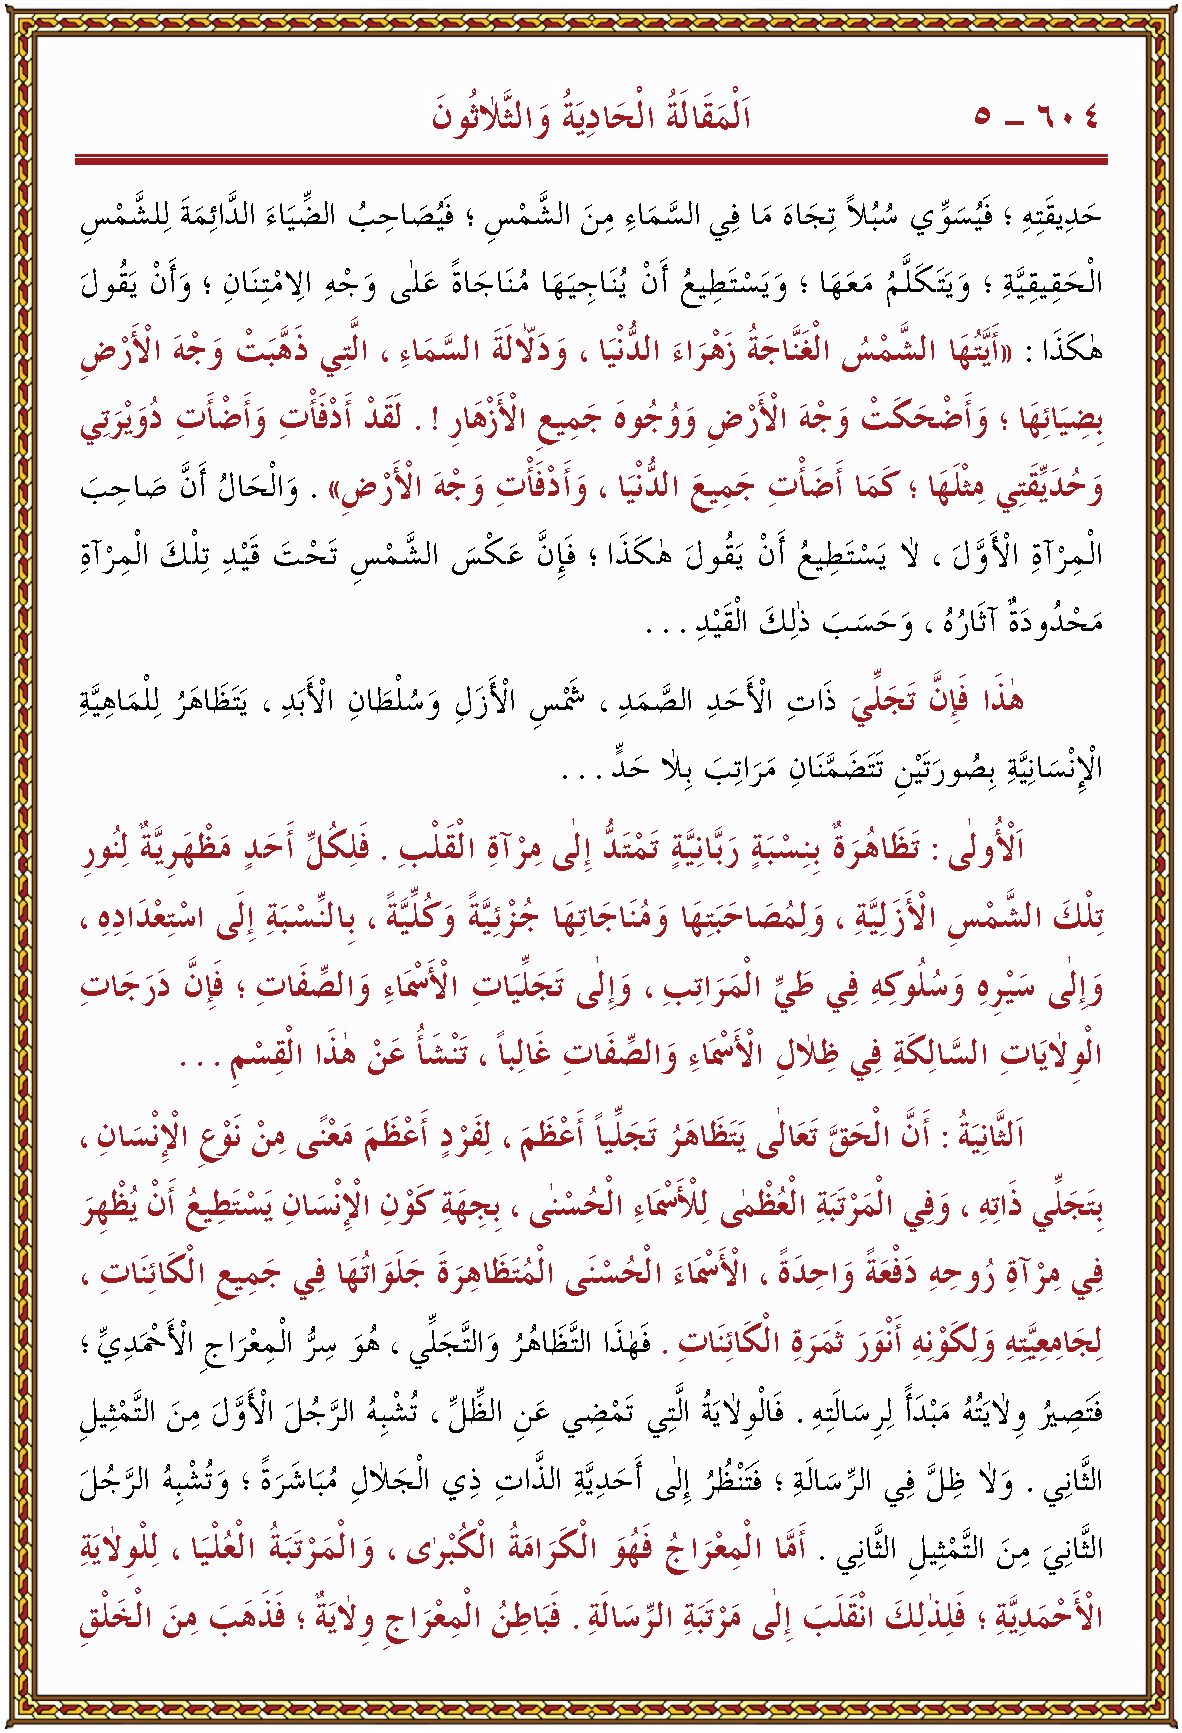 ٦٠٤ – ٥ اَلْمَقَالَةُ الْحَادِيَةُ وَالثَّلاٰثُونَ
حَدِيقَتِهِ ؛ فَيُسَوِّي سُبُلاً تِجَاهَ مَا فِي السَّمَاءِ مِنَ الشَّمْسِ ؛ فَيُصَاحِبُ الضِّيَاءَ الدَّائِمَةَ لِلشَّمْسِ
الْحَقِيقِيَّةِ ؛ وَيَتَكَلَّمُ مَعَهَا ؛ وَيَسْتَطِيعُ أَنْ يُنَاجِيَهَا مُنَاجَاةً عَلٰى وَجْهِ الِامْتِنَانِ ؛ وَأَنْ يَقُولَ
هٰكَذَا : «أَيَّتُهَا الشَّمْسُ الْغَنَّاجَةُ زَهْرَاءَ الدُّنْيَا ، وَدَلاَّلَةَ السَّمَاءِ ، الَّتِي ذَهَّبَتْ وَجْهَ الْأَرْضِ
بِضِيَائِهَا ؛ وَأَضْحَكَتْ وَجْهَ الْأَرْضِ وَوُجُوهَ جَمِيعِ الْأَزْهَارِ ! . لَقَدْ أَدْفَأْتِ وَأَضَأْتِ دُوَيْرَتِي
وَحُدَيِّقَتِي مِثْلَهَا ؛ كَمَا أَضَأْتِ جَمِيعَ الدُّنْيَا ، وَأَدْفَأْتِ وَجْهَ الْأَرْضِ» . وَالْحَالُ أَنَّ صَاحِبَ
الْمِرْآةِ الْأَوَّلَ ، لاٰ يَسْتَطِيعُ أَنْ يَقُولَ هٰكَذَا ؛ فَإِنَّ عَكْسَ الشَّمْسِ تَحْتَ قَيْدِ تِلْكَ الْمِرْآةِ
مَحْدُودَةٌ آثَارُهُ ، وَحَسَبَ ذٰلِكَ الْقَيْدِ . . .
هٰذَا فَإِنَّ تَجَلِّيَ ذَاتِ الْأَحَدِ الصَّمَدِ ، شَمْسِ الْأَزَلِ وَسُلْطَانِ الْأَبَدِ ، يَتَظَاهَرُ لِلْمَاهِيَّةِ
الْإِنْسَانِيَّةِ بِصُورَتَيْنِ تَتَضَمَّنَانِ مَرَاتِبَ بِلاٰ حَدٍّ . . .
اَلْأُولٰى : تَظَاهُرَةٌ بِنِسْبَةٍ رَبَّانِيَّةٍ تَمْتَدُّ إِلٰى مِرْآةِ الْقَلْبِ . فَلِكُلِّ أَحَدٍ مَظْهَرِيَّةٌ لِنُورِ
تِلْكَ الشَّمْسِ الْأَزَلِيَّةِ ، وَلِمُصَاحَبَتِهَا وَمُنَاجَاتِهَا جُزْئِيَّةً وَكُلِّيَّةً ، بِالنِّسْبَةِ إِلَى اسْتِعْدَادِهِ ،
وَإِلٰى سَيْرِهِ وَسُلُوكِهِ فِي طَيِّ الْمَرَاتِبِ ، وَإِلٰى تَجَلِّيَاتِ الْأَسْمَاءِ وَالصِّفَاتِ ؛ فَإِنَّ دَرَجَاتِ
الْوِلاٰيَاتِ السَّالِكَةِ فِي ظِلاٰلِ الْأَسْمَاءِ وَالصِّفَاتِ غَالِباً ، تَنْشَأُ عَنْ هٰذَا الْقِسْمِ . . .
اَلثَّانِيَةُ : أَنَّ الْحَقَّ تَعَالٰى يَتَظَاهَرُ تَجَلِّياً أَعْظَمَ ، لِفَرْدٍ أَعْظَمَ مَعْنًى مِنْ نَوْعِ الْإِنْسَانِ ،
بِتَجَلِّي ذَاتِهِ ، وَفِي الْمَرْتَبَةِ الْعُظْمٰى لِلْأَسْمَاءِ الْحُسْنٰى ، بِجِهَةِ كَوْنِ الْإِنْسَانِ يَسْتَطِيعُ أَنْ يُظْهِرَ
فِي مِرْآةِ رُوحِهِ دَفْعَةً وَاحِدَةً ، الْأَسْمَاءَ الْحُسْنَى الْمُتَظَاهِرَةَ جَلَوَاتُهَا فِي جَمِيعِ الْكَائِنَاتِ ،
لِجَامِعِيَّتِهِ وَلِكَوْنِهِ أَنْوَرَ ثَمَرَةِ الْكَائِنَاتِ . فَهٰذَا التَّظَاهُرُ وَالتَّجَلِّي ، هُوَ سِرُّ الْمِعْرَاجِ الْأَحْمَدِيِّ ؛
فَتَصِيرُ وِلاٰيَتُهُ مَبْدَأً لِرِسَالَتِهِ . فَالْوِلاٰيَةُ الَّتِي تَمْضِي عَنِ الظِّلِّ ، تُشْبِهُ الرَّجُلَ الْأَوَّلَ مِنَ التَّمْثِيلِ
الثَّانِي . وَلاٰ ظِلَّ فِي الرِّسَالَةِ ؛ فَتَنْظُرُ إِلٰى أَحَدِيَّةِ الذَّاتِ ذِي الْجَلاٰلِ مُبَاشَرَةً ؛ وَتُشْبِهُ الرَّجُلَ
الثَّانِيَ مِنَ التَّمْثِيلِ الثَّانِي . أَمَّا الْمِعْرَاجُ فَهُوَ الْكَرَامَةُ الْكُبْرٰى ، وَالْمَرْتَبَةُ الْعُلْيَا ، لِلْوِلاٰيَةِ
الْأَحْمَدِيَّةِ ؛ فَلِذٰلِكَ انْقَلَبَ إِلٰى مَرْتَبَةِ الرِّسَالَةِ . فَبَاطِنُ الْمِعْرَاجِ وِلاٰيَةٌ ؛ فَذَهَبَ مِنَ الْخَلْقِ